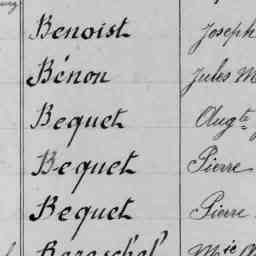 Benoist Joseph
Bénon Jules M
Bequet Augte
Bequet Pierre
Bequet Pierre
Mie